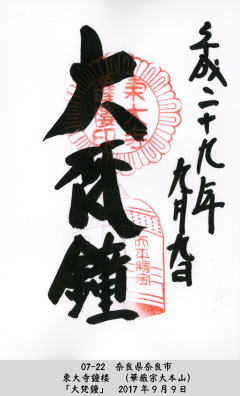 平成二十九年
九月九日
大梵鐘
東大寺
鐘楼印
天平勝宝
07-22　奈良県奈良市
東大寺鐘楼　（華厳宗大本山）
「大梵鐘」　2017年9月9日